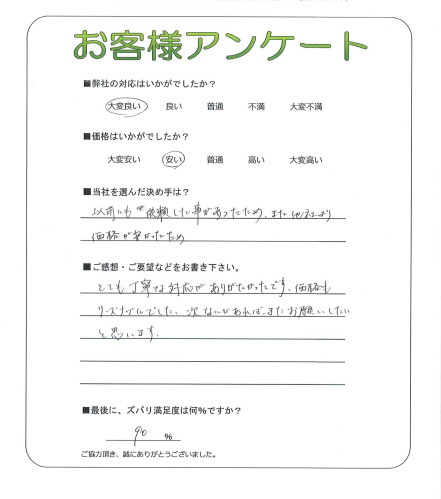 お客様アンケート
■弊社の対応はいかがでしたか?
大変良い 良い 普通 不満 大変不満
■価格はいかがでしたか?
大変安い 安い 普通 高い 大変高い
■当社を選んだ決め手は?
以前にも依頼した事があったため、また他社より
価格が安かったため
■ご感想・ご要望などをお書き下さい。
とても丁寧な対応がありがたかったです、価格も
リーズナブルでした、次なにかあれば、またお願いしたい
と思います。
■最後に、ズバリ満足度は何%ですか?
90 %
ご協力頂き、誠にありがとうございました。